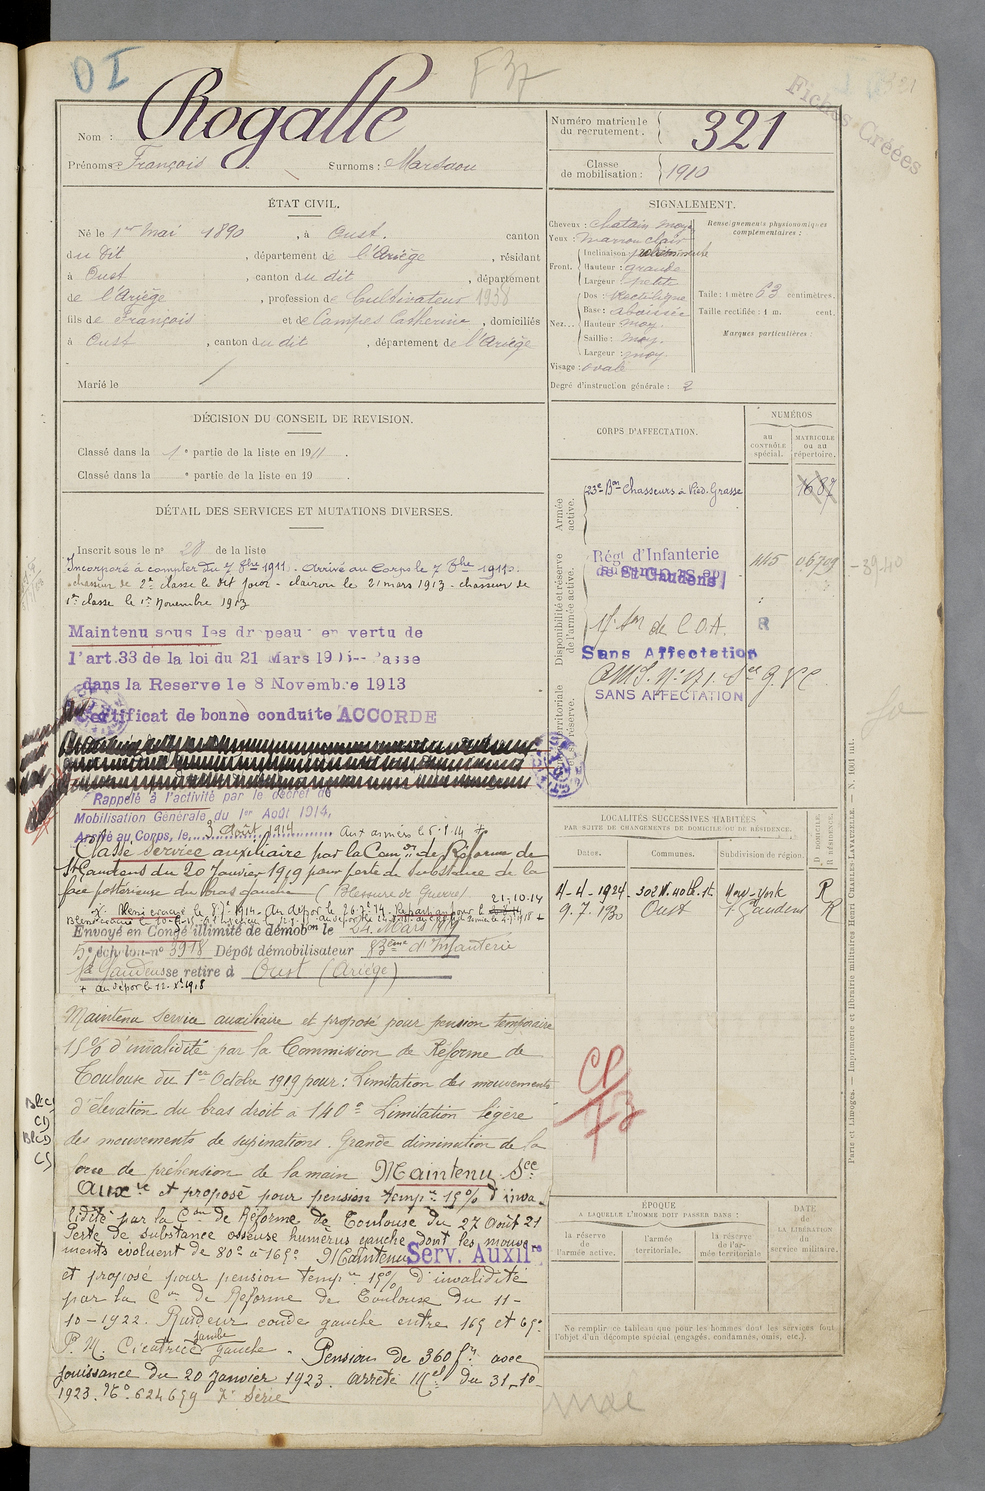 D I
F 37
321
Fiches Créées
Nom : Rogalle
Prénoms : François Surnoms : Marsaou
Numéro matricule du recrutement : 321
Classe de mobilisation : 1910
ÉTAT CIVIL.
Né le 1er Mai 1890, à Oust. canton
du dit, département de l'Ariège, résidant
à Oust, canton du dit, département
de l'Ariège, profession de Cultivateur 1938
fils de François et de Campes Catherine, domiciliés
à Oust, canton du dit, département de l'Ariège
Marié le
SIGNALEMENT.
Cheveux : chatain moy.
Yeux : marron clair
Front. Inclinaison
Hauteur : grande
Largeur : petite
Nez... Dos : Rectiligne
Base : abaissée
Hauteur moy.
Saillie : moy.
Largeur : moy
Visage : ovale
Renseignements physionomiques complémentaires :
Taille : 1 mètre 63 centimètres.
Taille rectifiée : 1 m. cent.
Marques particulières :
Degré d'instruction générale : 2
DÉCISION DU CONSEIL DE REVISION.
Classé dans la 1e partie de la liste en 1911.
Classé dans la e partie de la liste en 19 .
DÉTAIL DES SERVICES ET MUTATIONS DIVERSES.
Inscrit sous le no 28 de la liste
Incorporé à compter du 7 8bre 1911. Arrivé au Corps le 7 8bre 1911.
chasseur de 2e classe le dit jour - clairon le 21 mars 1913 - chasseur de
1re classe le 1er Novembre 1913
Maintenu sous les drapeaux en vertu de
l'art.33 de la loi du 21 Mars 1905 -- Passe
dans la Reserve le 8 Novembre 1913
Certificat de bonne conduite ACCORDE
Rappelé à l'activité par le décret de
Mobilisation Générale du 1er Août 1914,
Arrivé au Corps, le 3 Août 1914 Aux armées le
Classé service auxiliaire par la Comon de Réforme de
St Gaudens du 20 Janvier 1919 pour perte de substance de la
face postérieure du bras gauche (Blessure de Guerre)
21-10-14
Envoyé en Congé illimité de démobon le 24 Mars 1919
5e échelon no 3918 Dépôt démobilisateur 83ème d'Infanterie
St Gaudens se retire à Oust (Ariège)
+ au dépôt le 12. Xe 1918
Maintenu Service auxiliaire et proposé pour pension temporaire
15% d'invalidité par la Commission de Réforme de
Toulouse du 1er Octobre 1919 pour : Limitation des mouvements
d'élévation du bras droit à 140° Limitation légère
des mouvements de supinations. Grande diminution de la
force de préhension de la main Maintenu Sce
Auxre et proposé pour pension tempre 15% d'inva-
lidité par la Con de Réforme de Toulouse du 27 Août 21
Perte de substance osseuse humérus gauche dont les mouve-
ments évoluent de 80° à 165° Maintenu Serv. Auxilre
et proposé pour pension tempre 15% d'invalidité
par la Con de Réforme de Toulouse du 11-
10-1922. Raideur coude gauche entre 165 et 65°
P. M. Cicatrice jambe gauche - Pension de 360 frs avec
jouissance du 20 Janvier 1923. Arrêté Mel du 31-10-
1923. No 624659 7e Série
CORPS D'AFFECTATION.
NUMÉROS
au CONTRÔLE spécial.
MATRICULE ou au répertoire.
Armée active.
23e Bon Chasseurs à Pied. Grasse 1687
Disponibilité et réserve de l'armée active.
Régt d'Infanterie
de St Gaudens 445 06709 - 39-40
Sans Affectation
SANS AFFECTATION
LOCALITÉS SUCCESSIVES HABITÉES
PAR SUITE DE CHANGEMENTS DE DOMICILE OU DE RÉSIDENCE.
Dates. Communes. Subdivision de région. D. DOMICILE. R. RÉSIDENCE.
4-4-1924 302 W. 40th. St. New-York R
9.7.1930 Oust St Gaudens R
ÉPOQUE
A LAQUELLE L'HOMME DOIT PASSER DANS :
la réserve de l'armée active.
l'armée territoriale.
la réserve de l'armée territoriale
DATE de LA LIBÉRATION du service militaire.
Ne remplir ce tableau que pour les hommes dont les services font l'objet d'un décompte spécial (engagés, condamnés, omis, etc.).
Paris et Limoges. — Imprimerie et librairie militaires Henri CHARLES-LAVAUZELLE. — N. 1601 int.